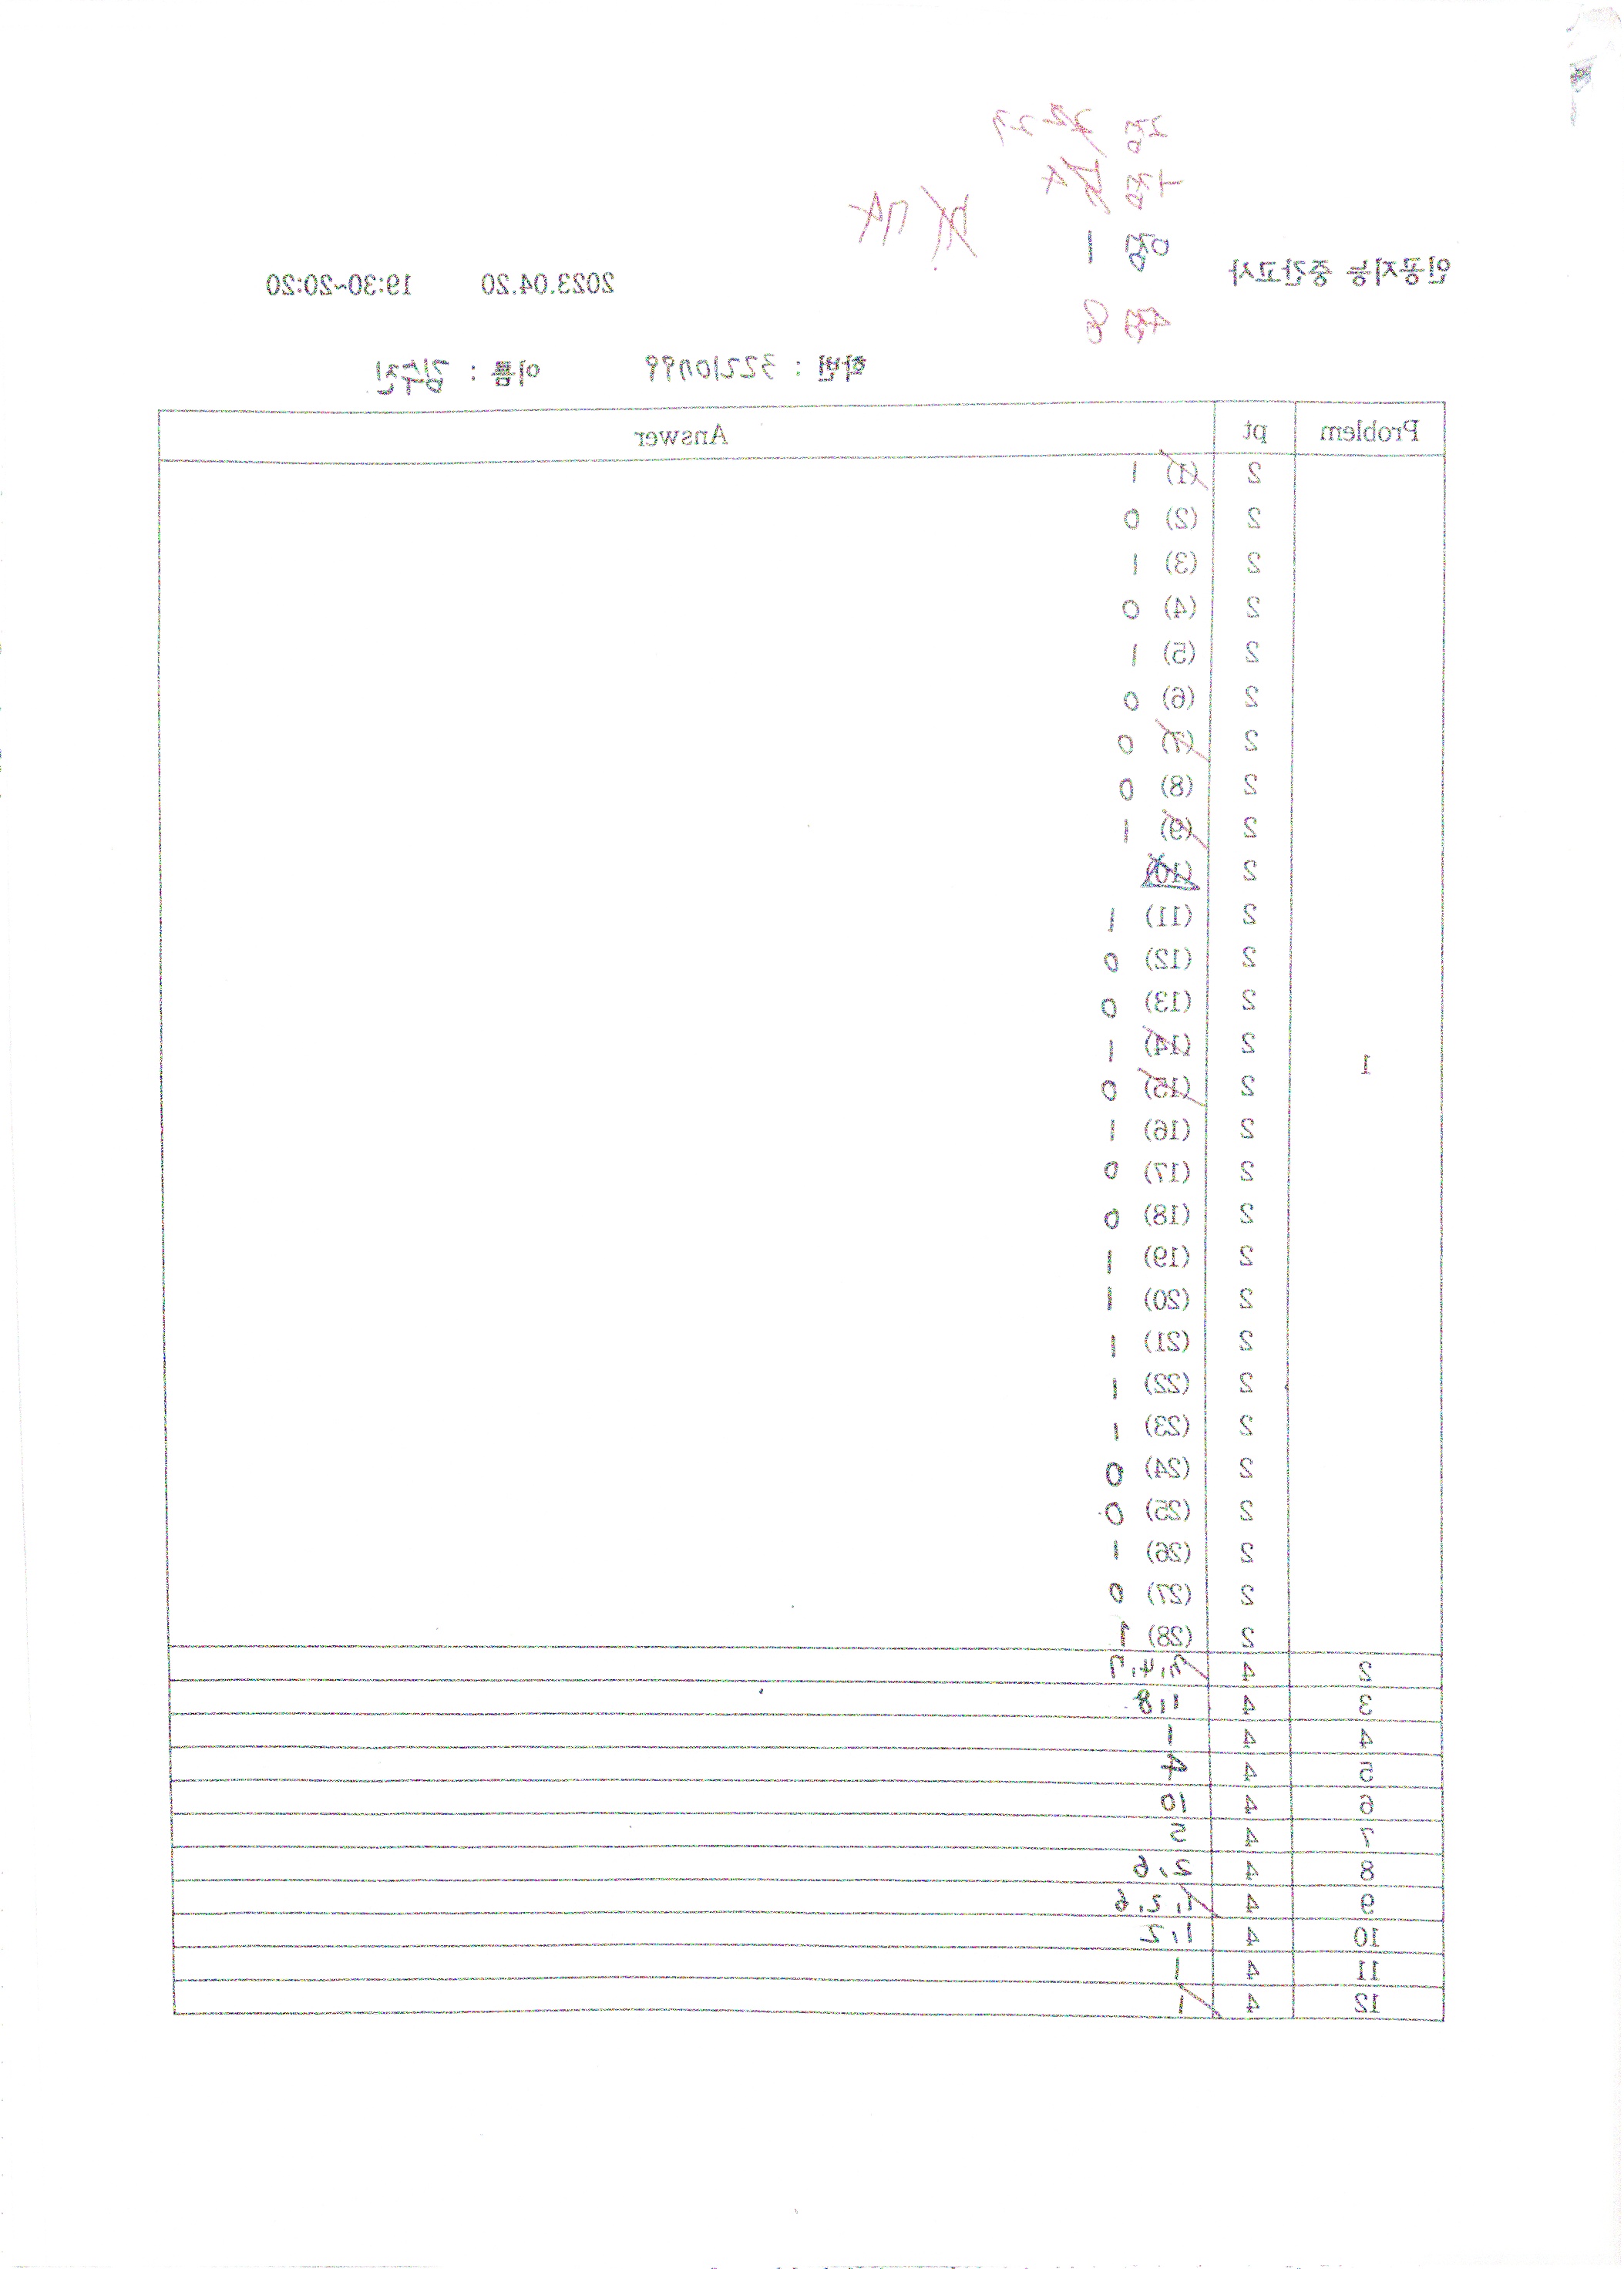 2점 22 27
+점 4
0점 1
74
4점 8
인공지능 중간고사 2023.04.20 19:30~20:20
학번 : 32210799 이름 : 김수진
Problem pt Answer
1
2 (1) 1
2 (2) 0
2 (3) 1
2 (4) 0
2 (5) 1
2 (6) 0
2 (7) 0
2 (8) 0
2 (9) 1
2 (10)
2 (11) 1
2 (12) 0
2 (13) 0
2 (14) 1
2 (15) 0
2 (16) 1
2 (17) 0
2 (18) 0
2 (19) 1
2 (20) 1
2 (21) 1
2 (22) 1
2 (23) 1
2 (24) 0
2 (25) 0
2 (26) 1
2 (27) 0
2 (28) 1
2 4 4, 7
3 4 1, 8
4 4 1
5 4 4
6 4 10
7 4 5
8 4 2, 6
9 4 1, 2, 6
10 4 1, 2
11 4 1
12 4 1